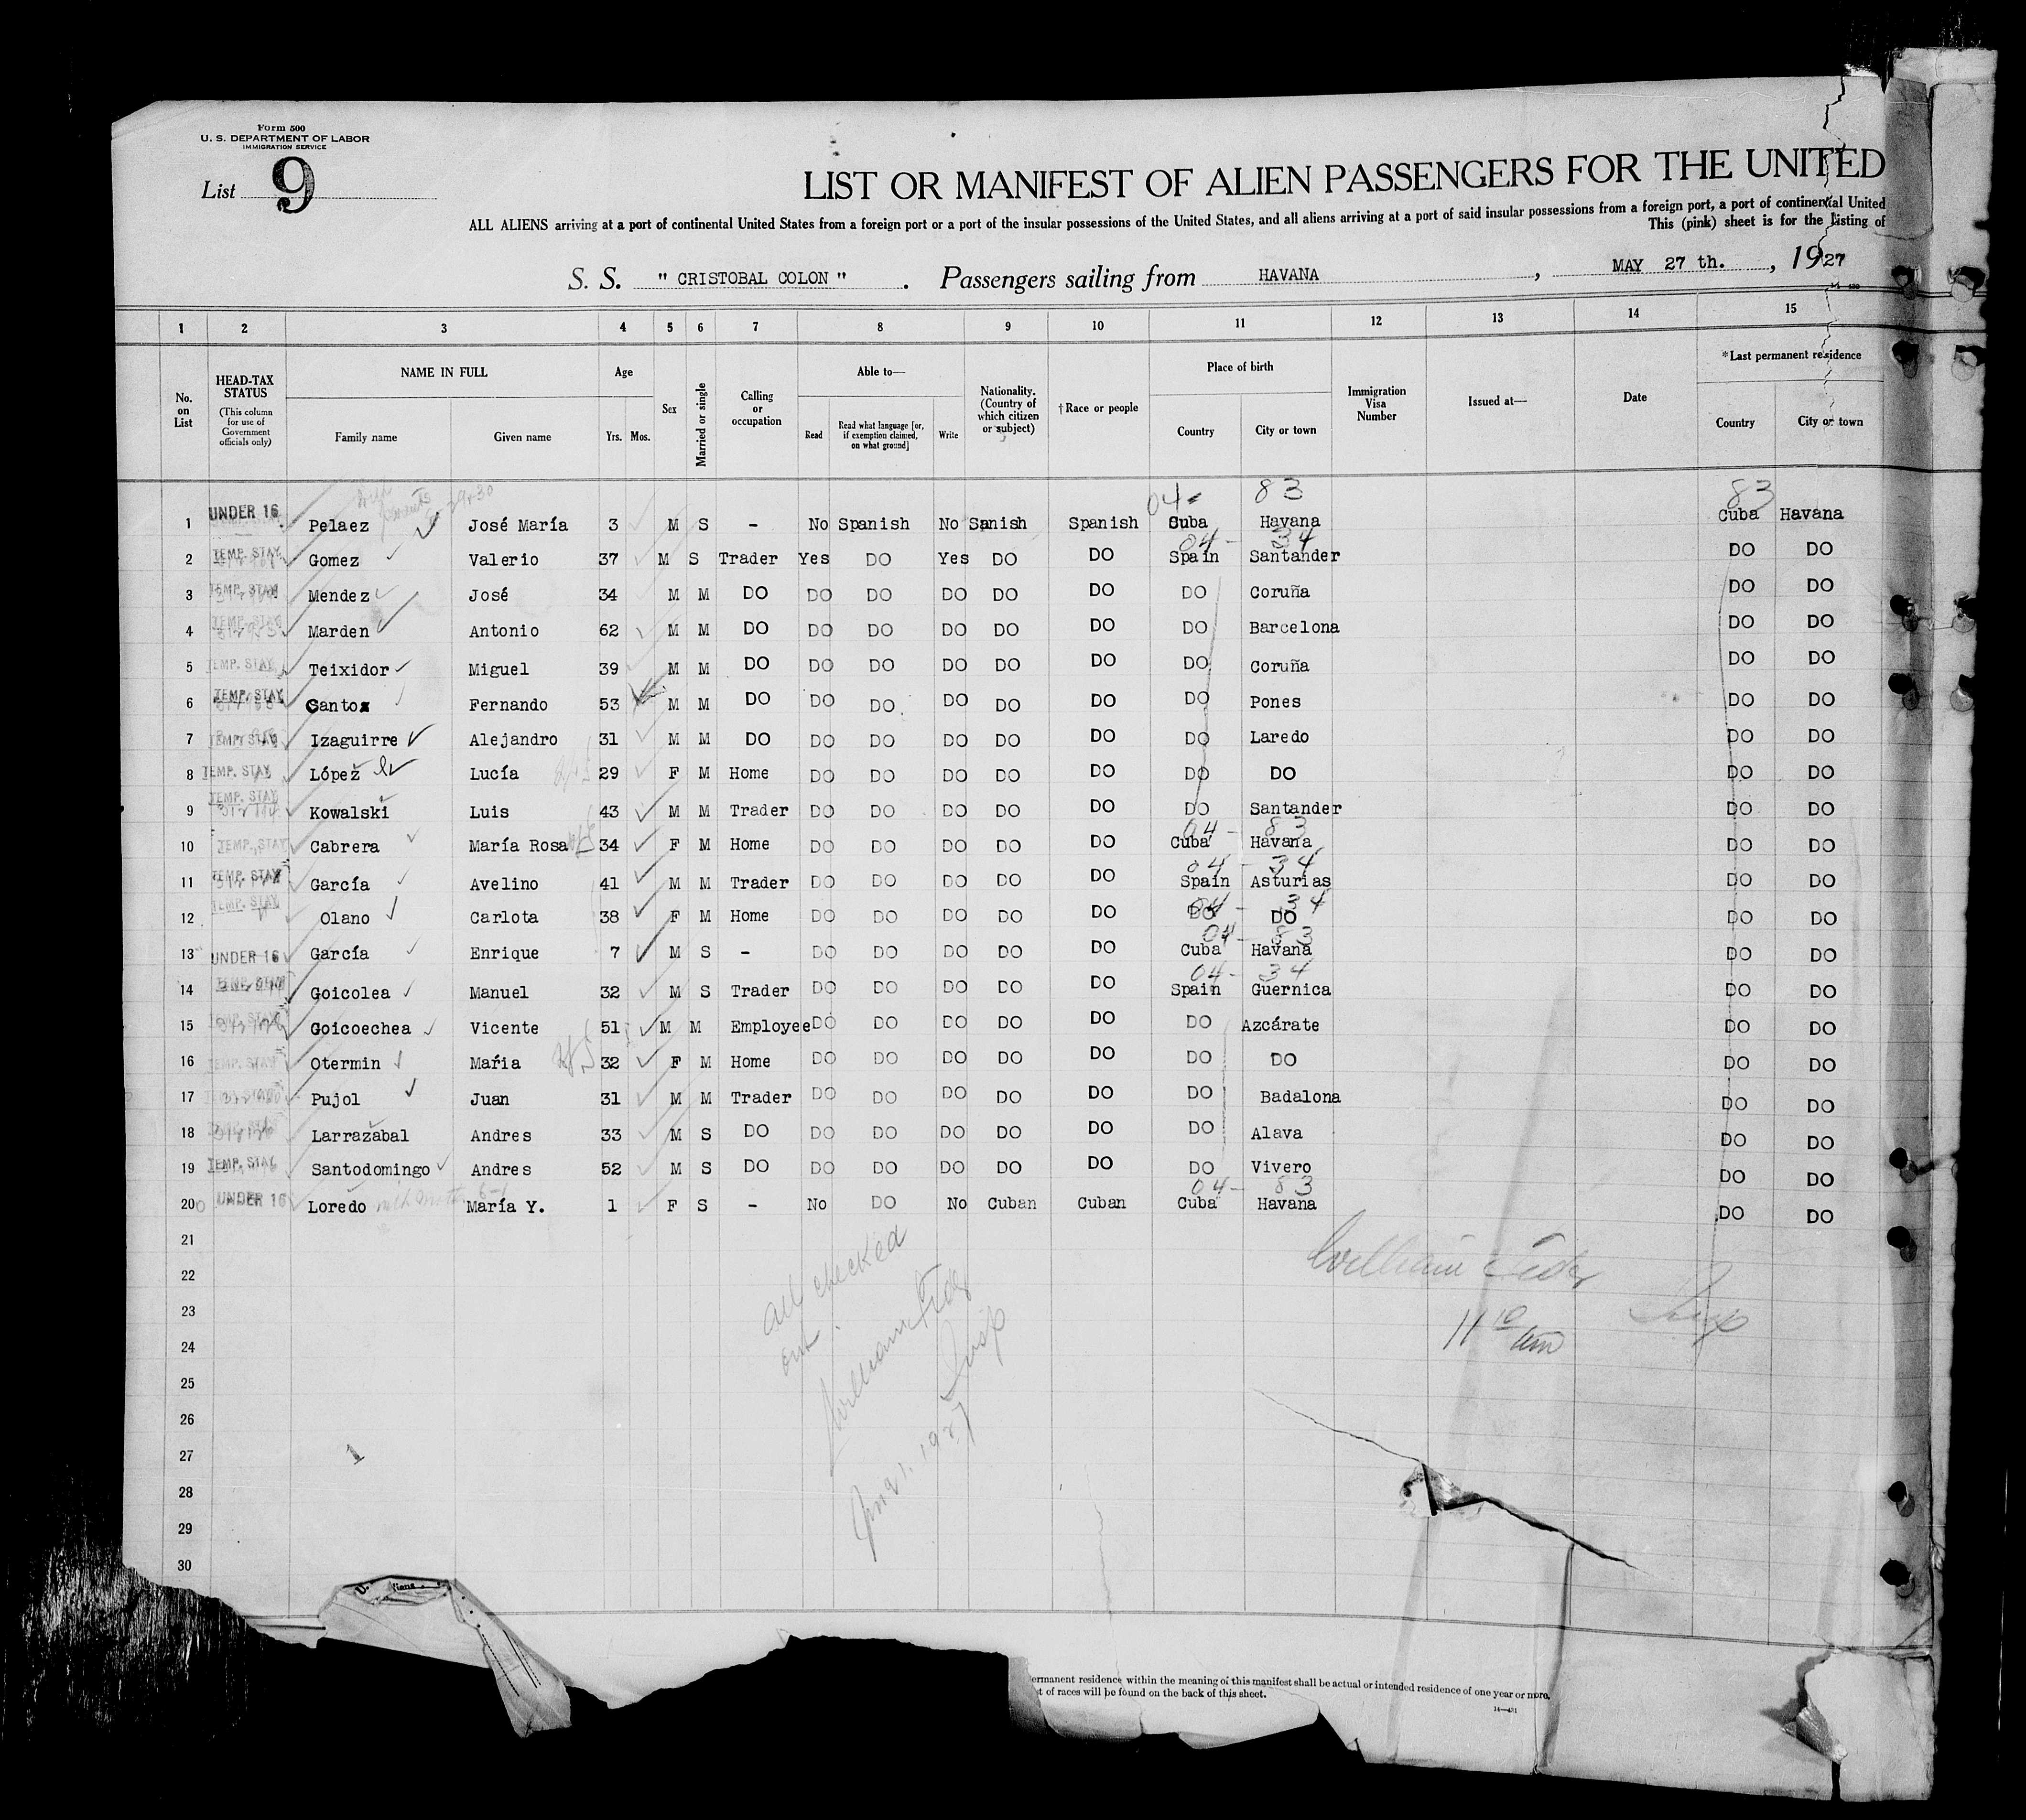 Form 500
U. S. DEPARTMENT OF LABOR
IMMIGRATION SERVICE
List 9
LIST OR MANIFEST OF ALIEN PASSENGERS FOR THE UNITED
ALL ALIENS arriving at a port of continental United States from a foreign port or a port of the insular possessions of the United States, and all aliens arriving at a port of said insular possessions from a foreign port, a port of continental United
This (pink) sheet is for the listing of
S. S. " CRISTOBAL COLON " . Passengers sailing from HAVANA , MAY 27 th. , 1927
1 2 3 4 5 6 7 8 9 10 11 12 13 14 15
No. on List
HEAD-TAX STATUS (This column for use of Government officials only)
NAME IN FULL
Family name Given name
Age
Yrs. Mos.
Sex
Married or single
Calling or occupation
Able to—
Read Read what language [or, if exemption claimed, on what ground] Write
Nationality. (Country of which citizen or subject)
†Race or people
Place of birth
Country City or town
Immigration Visa Number
Issued at—
Date
*Last permanent residence
Country City or town
04- 83 83
1 UNDER 16 Pelaez José María 3 M S - No Spanish No Spanish Spanish Cuba Havana Cuba Havana
04- 34
2 TEMP. STAY Gomez Valerio 37 M S Trader Yes DO Yes DO DO Spain Santander DO DO
3 TEMP. STAY Mendez José 34 M M DO DO DO DO DO DO DO Coruña DO DO
4 TEMP. STAY Marden Antonio 62 M M DO DO DO DO DO DO DO Barcelona DO DO
5 TEMP. STAY Teixidor Miguel 39 M M DO DO DO DO DO DO DO Coruña DO DO
6 TEMP. STAY Fernando 53 M M DO DO DO DO DO DO DO Pones DO DO
7 TEMP. STAY Izaguirre Alejandro 31 M M DO DO DO DO DO DO DO Laredo DO DO
8 TEMP. STAY López Lucía 29 F M Home DO DO DO DO DO DO DO DO DO
9 TEMP. STAY Kowalski Luis 43 M M Trader DO DO DO DO DO DO Santander DO DO
04- 83
10 TEMP. STAY Cabrera María Rosa 34 F M Home DO DO DO DO DO Cuba Havana DO DO
04- 34
11 TEMP. STAY García Avelino 41 M M Trader DO DO DO DO DO Spain Asturias DO DO
04- 34
12 TEMP. STAY Olano Carlota 38 F M Home DO DO DO DO DO DO DO DO DO
04- 83
13 UNDER 16 García Enrique 7 M S - DO DO DO DO DO Cuba Havana DO DO
04- 34
14 Goicolea Manuel 32 M S Trader DO DO DO DO DO Spain Guernica DO DO
15 TEMP. STAY Goicoechea Vicente 51 M M Employee DO DO DO DO DO DO Azcárate DO DO
16 TEMP. STAY Otermin María 32 F M Home DO DO DO DO DO DO DO DO DO
17 Pujol Juan 31 M M Trader DO DO DO DO DO DO Badalona DO DO
18 TEMP. STAY Larrazabal Andres 33 M S DO DO DO DO DO DO DO Alava DO DO
19 TEMP. STAY Santodomingo Andres 52 M S DO DO DO DO DO DO DO Vivero DO DO
04- 83
20 UNDER 16 Loredo María Y. 1 F S - No DO No Cuban Cuban Cuba Havana DO DO
21
22
23
24
25
26
27
28
29
30
all checked
out
William
Insp
1927
William
Insp
11 10 am
1
ermanent residence within the meaning of this manifest shall be actual or intended residence of one year or more.
t of races will be found on the back of this sheet.